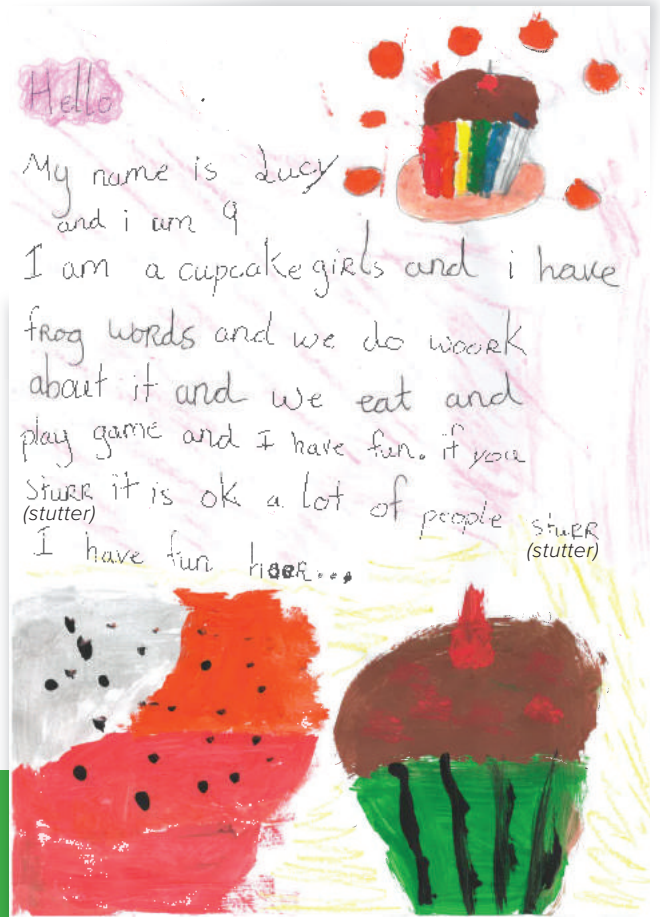 Hello
My name is Lucy
and i am 9
I am a cupcake giRls and i have
fRog woRds and we do wooRk
about it and we eat and
play game and I have fun. if you
stuRR it is ok a lot of people stuRR
(stutter)
(stutter)
I have fun